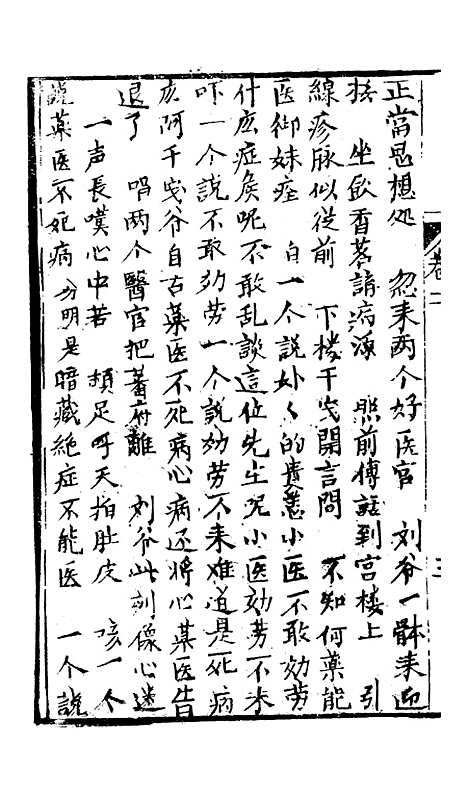 正當思想処 忽来两个好医官 刘爷一躰来迎
接 坐飲香茶講病源 照前傳話到宫楼上 引
線疹脉似從前 下楼千岁開言問 不知何藥能
医御妹症 白一个说妙〻的貴恙小医不敢効劳
什庅症候呢不敢乱談這位先生呢小医効劳不来
吓一个說不敢効劳一个說効劳不来难道是死病
庅阿千岁爷自古藥医不死病心病还將心藥医告
退了 唱两个醫官把蕃府離 刘爷此刻像心迷
一声長嘆心中若 頓足呼天拍肚皮 咳一个
說藥医不死病 分明是暗藏絶症不能医 一个說
卷二
三